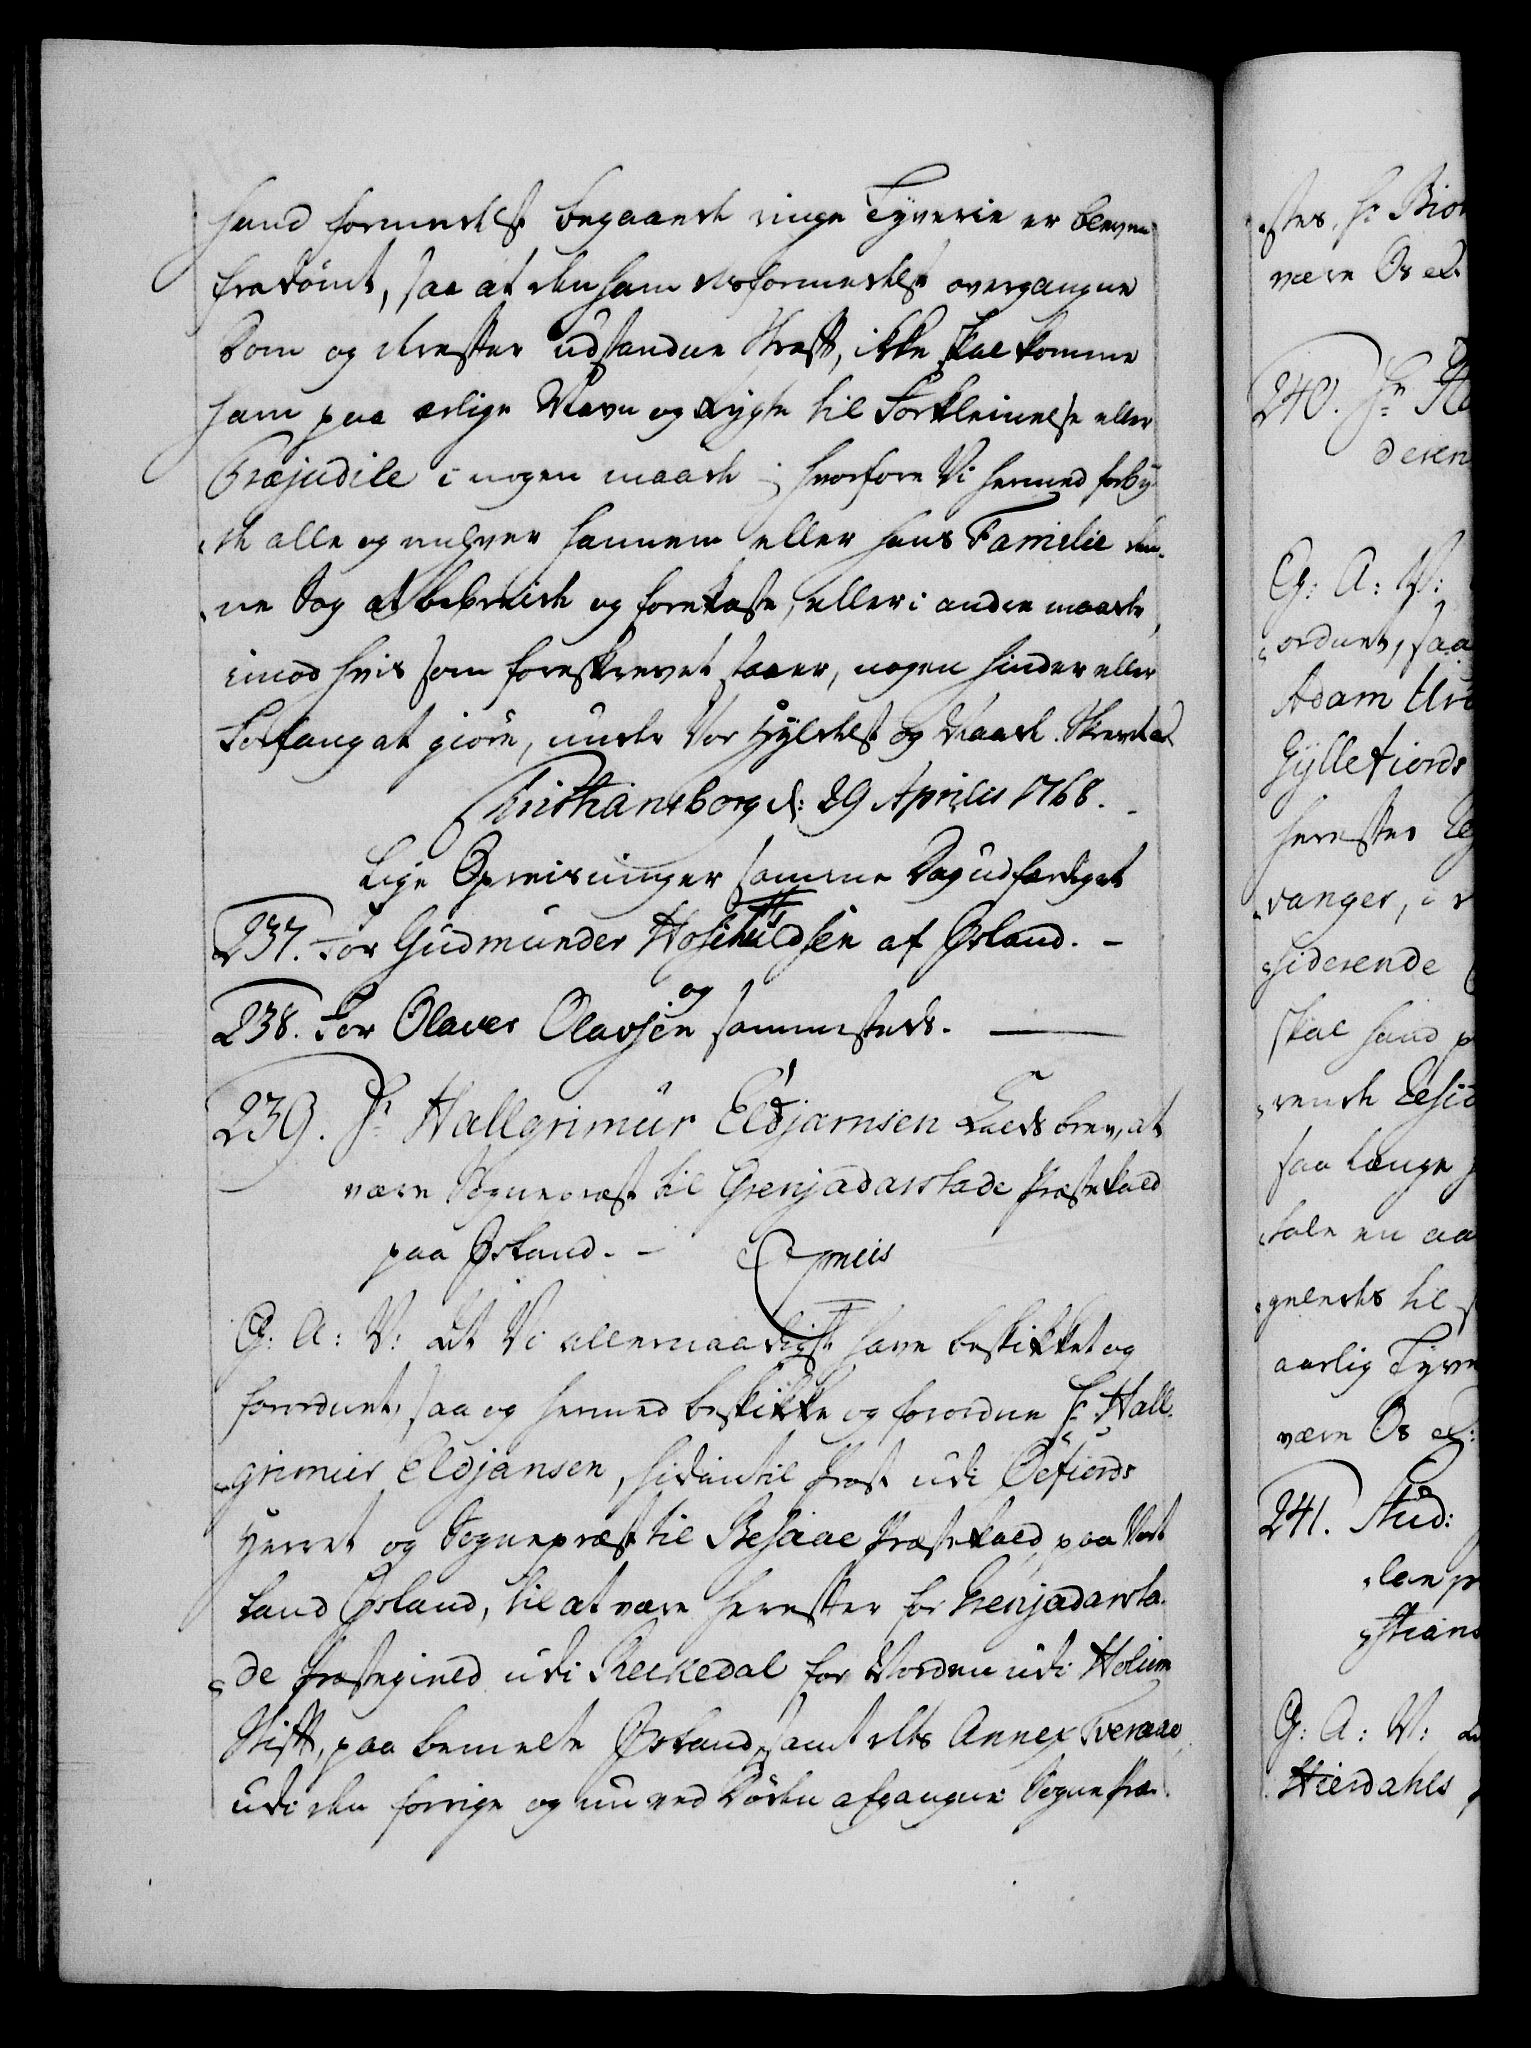 hand formedelst begaaende ringe Tyverie er bleven
fradömt, saa at den ham desformedelst overgangne
Dom og derefter udstandne Straff, ikke skal komme
ham paa ærlige Navn og Rygte til Forkleinelse eller
Præjudice i nogen maade; hvorfore Vi hermed forby-
de alle og enhver hannem eller hans Familie den-
ne Sag at bebreide og forekaste, eller i andre maade,
imod hvis som foreskrevet staaer, nogen hinder eller
Forfang at giöre, under Vor Hyldest og Naade. Skrevet
Christiansborg d: 29 Aprilis 1768.
Lige Opreisninger samme Dag udfærdiget
237. For Gudmunder Hoschuldsen af Island. -
og
238. For Olaver Olavsen sammesteds.
239. Hr Hallgrimur Eldjarnsen Kaldsbrev, at
være Sognepræst til Grenjadarstade Præstekald
paa Island. - Gratis
G: A: V: At Vi allernaadigst have beskikket og
forordnet, saa og hermed beskikke og forordne Hr Hall-
grimur Eldjansen, hidindtil Provst udi Öefiords
Herret og Sognepræst til Besaae Præstekald paa Vort
Land Island, til at være herefter for Grenjadarsta-
de Præstegield udi Reikedal for Norden udi Holum
Stift, paa bemelte Island, samt dets Annex Tveraae,
udi den forrige og nu ved Döden afgangne Sognepræ-
stes, Hr Bior
være Os etc.
240. Hr
deren
G: A: V:
ordnet, saa
Adam
Gyllefiords
herefter
vanger, i
siderende
skal hand
rende Resid
saa længe
tale en
gnendes til
aarlig
være Os etc:
241. Stud:
stians
G: A: V:
Hierdahls